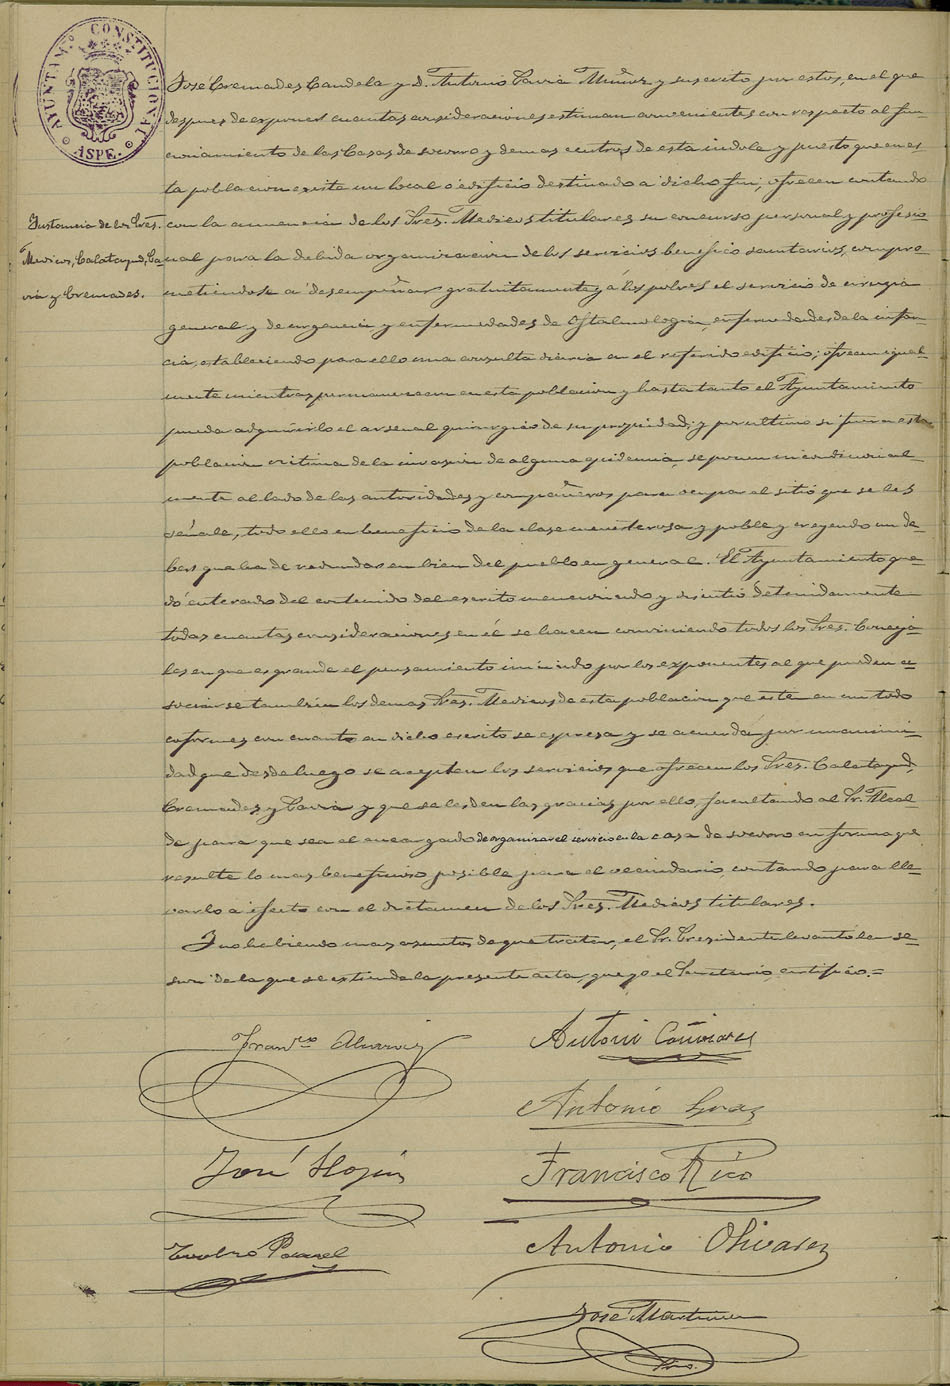 AYUNTAM.º CONSTITUCIONAL
ASPE.
José Cremades Candela y D. Antonio Pavía Muñoz y suscrito por estos, en el que
despues de exponer cuantas consideraciones estiman convenientes con respecto al fun-
cionamiento de las Casas de socorro y demas centros de esta indole y puesto que en es-
ta poblacion existe un local ó edificio destinado a dicho fin, ofrecen contando
Instancia de los Sres.
Medicos, Calatayud, Pa-
via y Cremades.
con la anuencia de los Sres. Medicos titulares su concurso personal y profesio-
nal para la debida organización de los servicios benefico sanitarios, compro-
metiendose a desempeñar gratuitamente y á los pobres el servicio de cirugia
general y de urgencia y enfermedades de Oftalmologia, enfermedades de la infan-
cia, estableciendo para ello una consulta diaria en el referido edificio; ofrecen igual-
mente mientras permanezcan en esta poblacion y hasta tanto el Ayuntamiento
pueda adquirirlo el arsenal quirurgico de su propiedad; y por ultimo si fuera esta
poblacion victima de la invasion de alguna epidemia, se ponen incondicional-
mente al lado de las autoridades y compañeros para ocupar el sitio que se les
señale, todo ello en beneficio de la clase menesterosa y pobre y creyendo un de-
ber que ha de redundar en bien del pueblo en general. El Ayuntamiento que-
dó enterado del contenido del escrito mencionado y discutió detenidamente
todas cuantas consideraciones en él se hacen conviniendo todos los Sres. Conceja-
les en que es grande el pensamiento iniciado por los exponentes al que pueden a-
sociarse tambien los demas Sres. Medicos de esta poblacion que esten en un todo
conformes con cuanto en dicho escrito se expresa y se acuerda por unanimi-
dad que desde luego se acepten los servicios que ofrecen los Sres. Calatayud,
Cremades y Pavia y que se les den las gracias por ello, facultando al Sr. Alcal-
de para que sea el encargado de organizar el servicio en la casa de socorro en forma que
resulte lo mas beneficioso posible para el vecindario, contando para lle-
varlo a efecto con el dictamen de los Sres. Medicos titulares.
Y no habiendo mas asuntos de que tratar, el Sr. Presidente levantó la se-
sion de la que se extiende la presente acta, que yo el Secretario, certifico.=
Franco
Antonio Cañizares
Antonio
José
Francisco Rico
Antonio Olivares
José Martinez
Srio.